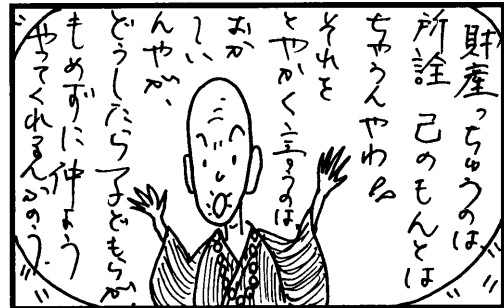 財産っちゅうのは
所詮 己のもんとは
ちゃうんやわ。
それを
とやかく言うのは、
おか
しい
んやが、
どうしたら子どもらが、
もめずに仲よう
やってくれるんかのう。